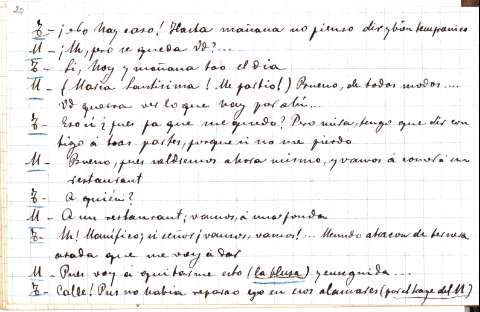 20
Z — ¡No hay caso! Hasta mañana no pienso dirme y bien tempranico
M — ¡Ah, pero se queda Vd?...
Z — Si, hoy y mañana too el dia
M — (¡Maria Santisima! ¡Me partió!) Bueno, de todos modos....
Vd querra ver lo que hay por ahí...
Z — Eso si ¿pues pa que me quedo? Pero mira, tengo que dir con
tigo á toas partes, porque si no me pierdo
M — Bueno, pues saldremos ahora mismo, y vamos á comer á un
restaurant
Z — A quién?
M — A un restaurant; vamos, á una fonda
Z — Ah! Manifico; si señor; vamos, vamos!... Menudo atracon de ternera
asada que me voy á dar
M — Pues voy á quitarme esto (la blusa) y enseguida...
Z — Calle! Pus no habia reparao yo en esos alamares (por el traje del M)